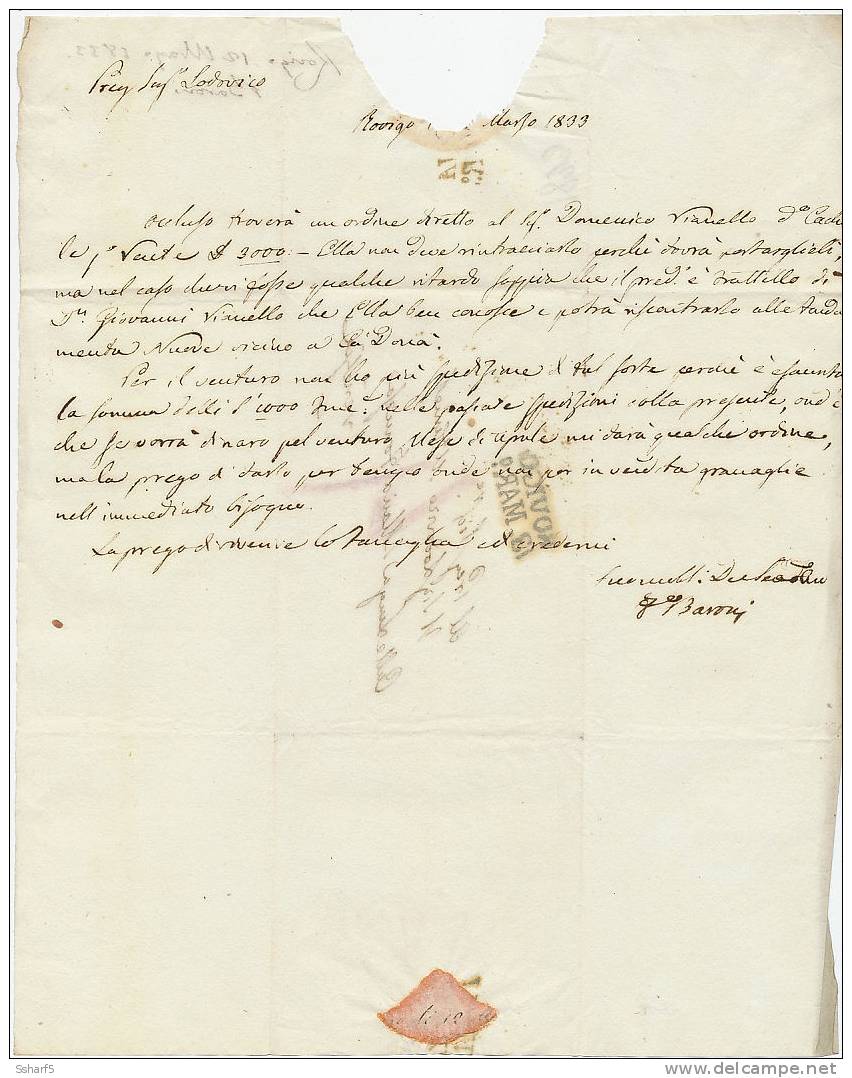 Preg. Sigr. Lodovico
Rovigo Marzo 1833
occluso troverà un ordine diretto al Sigr. Domenico Vianello
3000: - Ella non deve rintracciarlo perchè dovrà portarglieli,
ma nel caso che vi fosse qualche ritardo sappia che il pred.o è frattello di
Giovanni Vianello che Ella ben conosce e potrà riscontrarlo alle fonda
menta Nuove vicino a Cà Donà.
Per il venturo non ho più spedizione di tal sorte perchè è esaurita
la somma delli 1000 nelle passate spedizioni colla presente, ond'è
che se vorrà dinaro pel venturo Mese di Aprile mi darà qualche ordine,
ma la prego di darlo per tempo onde non por in vendita granaglie
nell'immediato bisogno.
La prego di riverire la famiglia ed credermi
Baroni
ROVIGO
MARZO
Rovigo 12 Marzo 1833.
Baroni
li 12
Ssharf5
www.delcampe.net